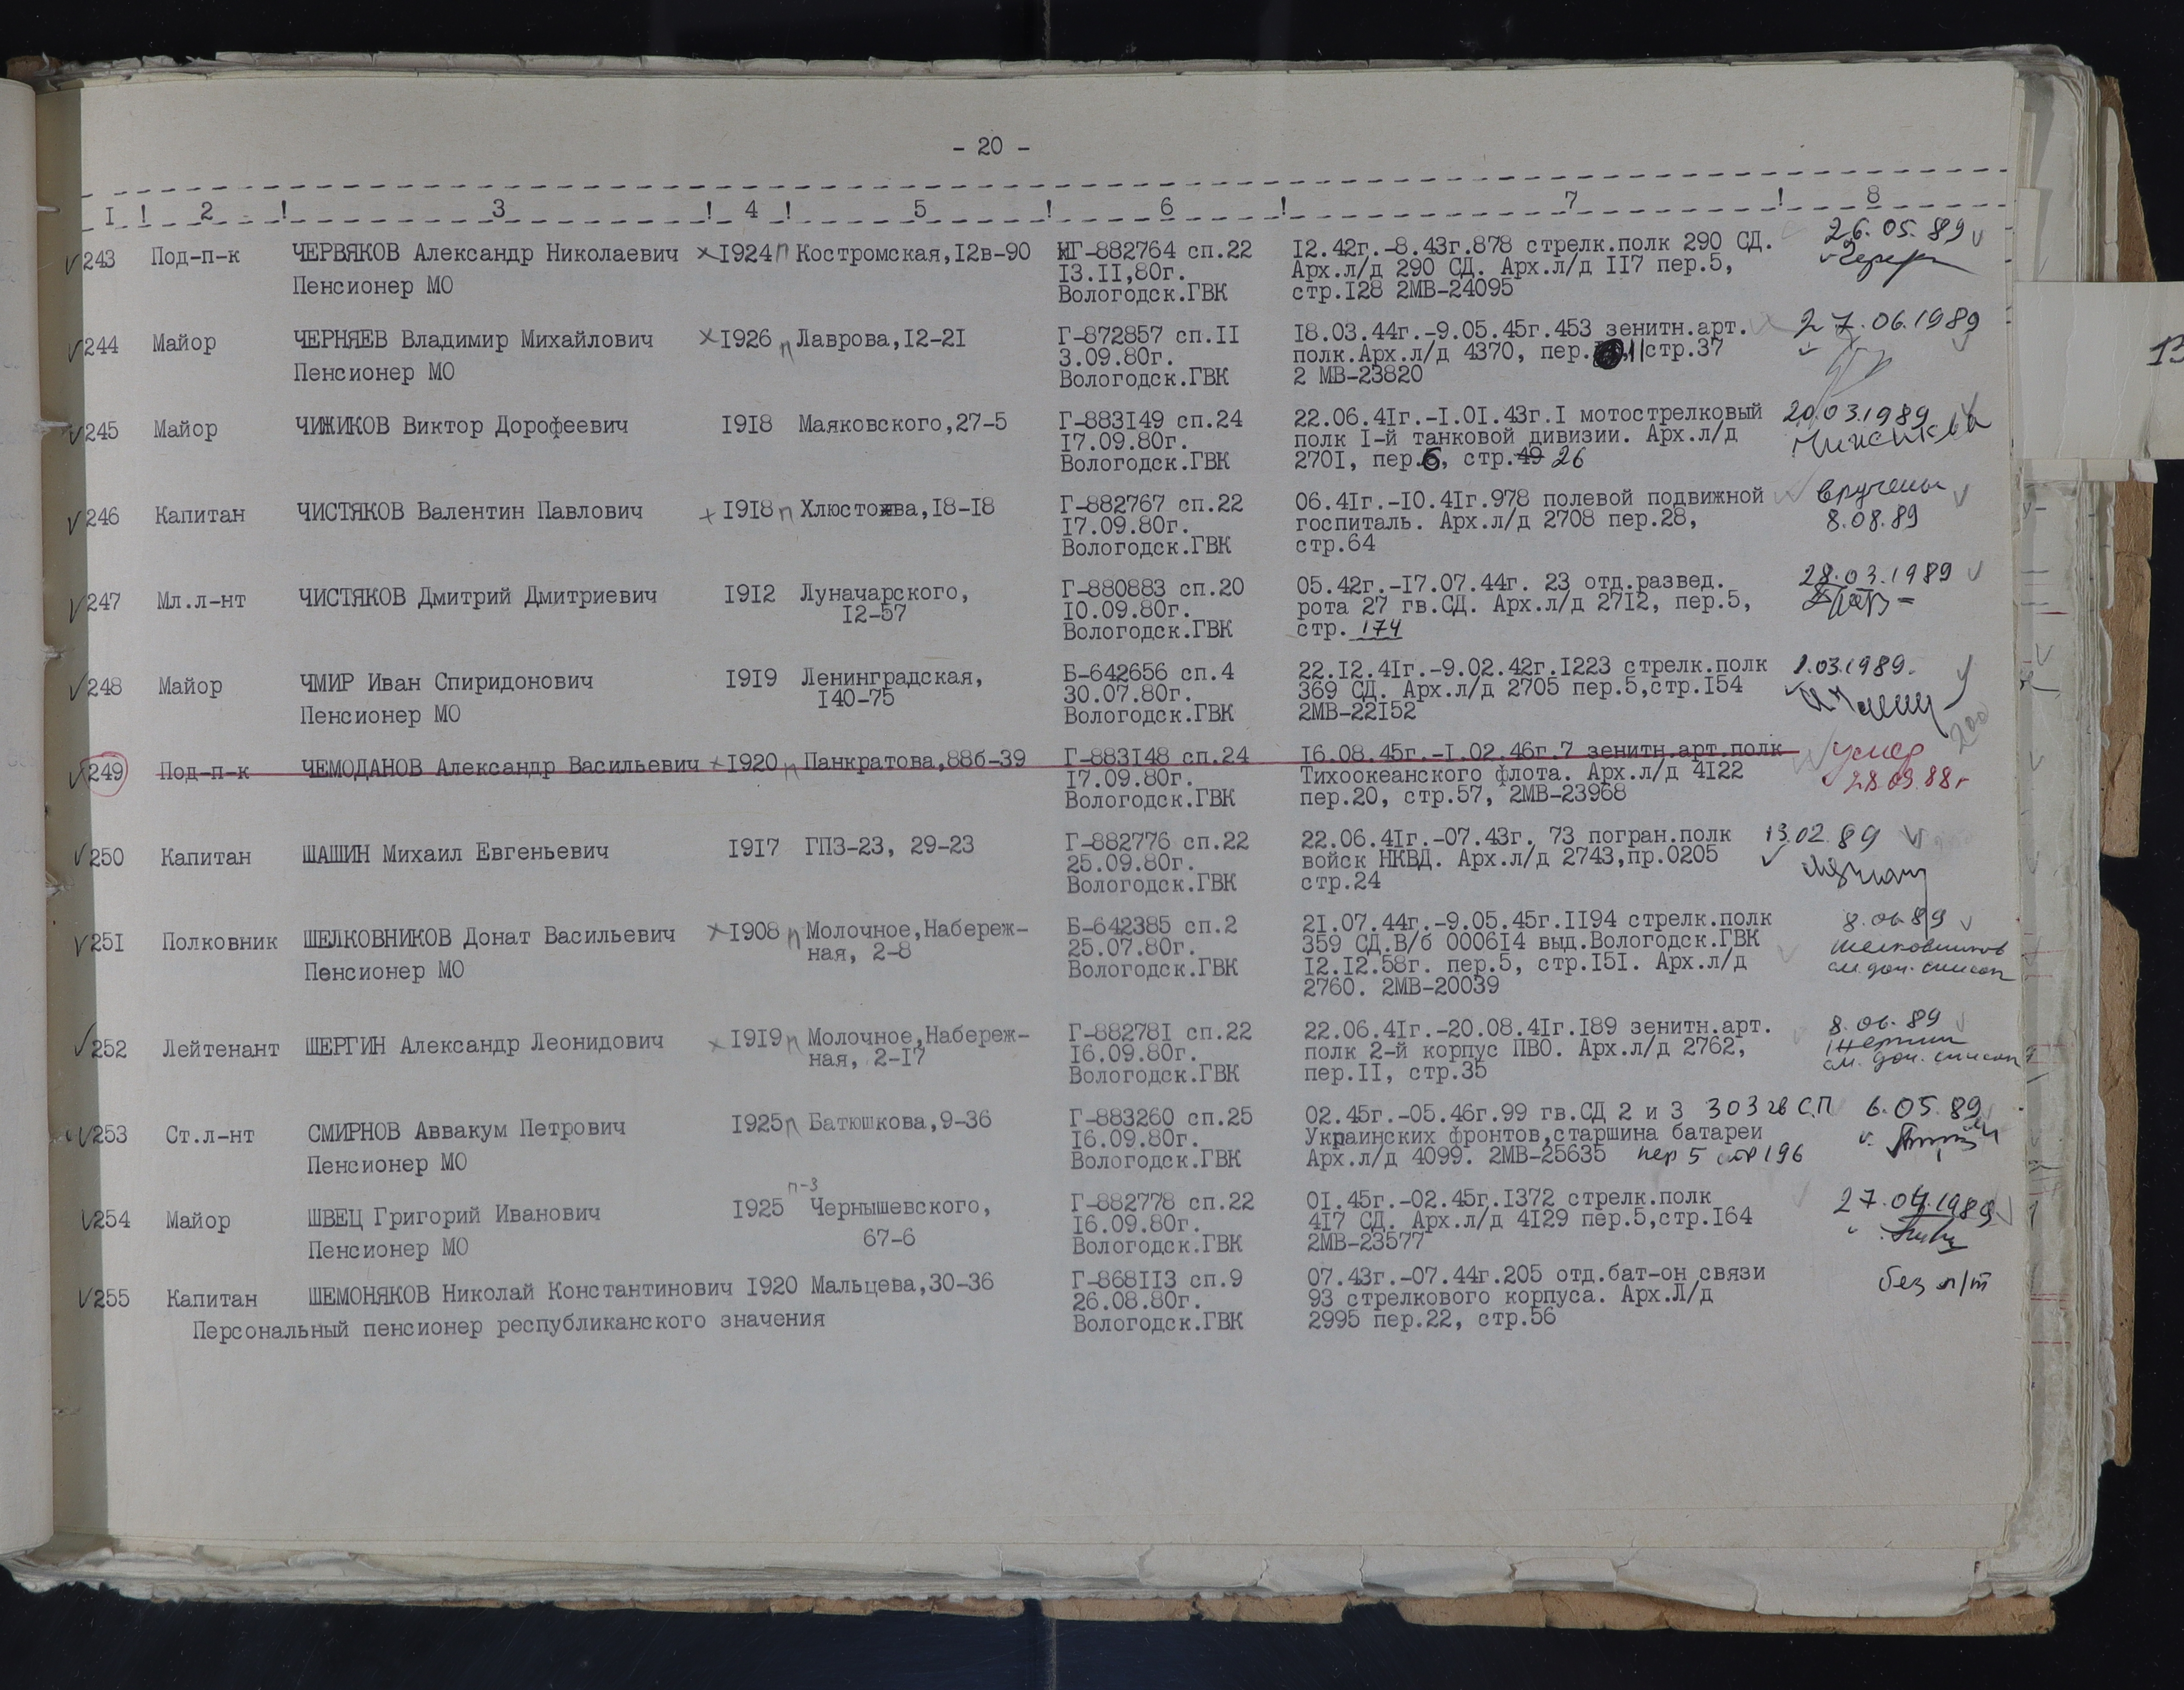 - 20 -
I ! 2 ! 3 ! 4 ! 5 ! 6 ! 7 ! 8
243 Под-п-к ЧЕРВЯКОВ Александр Николаевич I924 п Костромская,I2в-90 Г-882764 сп.22 I2.42г.-8.43г.878 стрелк.полк 290 СД. 26.05.89
Пенсионер МО I3.II,80г. Арх.л/д 290 СД. Арх.л/д II7 пер.5,
Вологодск.ГВК стр.I28 2МВ-24095
244 Майор ЧЕРНЯЕВ Владимир Михайлович I926 п Лаврова,I2-2I Г-872857 сп.II I8.03.44г.-9.05.45г.453 зенитн.арт. 27.06.1989
Пенсионер МО 3.09.80г. полк.Арх.л/д 4370, пер. 11 стр.37
Вологодск.ГВК 2 МВ-23820
245 Майор ЧИЖИКОВ Виктор Дорофеевич I9I8 Маяковского,27-5 Г-883I49 сп.24 22.06.4Iг.-I.0I.43г.I мотострелковый 20.03.1989
I7.09.80г. полк I-й танковой дивизии. Арх.л/д
Вологодск.ГВК 270I, пер.6, стр.49 26
246 Капитан ЧИСТЯКОВ Валентин Павлович I9I8 п Хлюстова,I8-I8 Г-882767 сп.22 06.4Iг.-I0.4Iг.978 полевой подвижной вручены
I7.09.80г. госпиталь. Арх.л/д 2708 пер.28, 8.08.89
Вологодск.ГВК стр.64
247 Мл.л-нт ЧИСТЯКОВ Дмитрий Дмитриевич I9I2 Луначарского, Г-880883 сп.20 05.42г.-I7.07.44г. 23 отд.развед. 28.03.1989
I2-57 I0.09.80г. рота 27 гв.СД. Арх.л/д 27I2, пер.5,
Вологодск.ГВК стр. 174
248 Майор ЧМИР Иван Спиридонович I9I9 Ленинградская, Б-642656 сп.4 22.I2.4Iг.-9.02.42г.I223 стрелк.полк 1.03.1989.
Пенсионер МО I40-75 30.07.80г. 369 СД. Арх.л/д 2705 пер.5,стр.I54
Вологодск.ГВК 2МВ-22I52
249 Под-п-к ЧЕМОДАНОВ Александр Васильевич I920 п Панкратова,88б-39 Г-883I48 сп.24 I6.08.45г.-I.02.46г.7 зенитн.арт.полк умер
I7.09.80г. Тихоокеанского флота. Арх.л/д 4I22 28.09.88г
Вологодск.ГВК пер.20, стр.57, 2МВ-23968
250 Капитан ШАШИН Михаил Евгеньевич I9I7 ГПЗ-23, 29-23 Г-882776 сп.22 22.06.4Iг.-07.43г. 73 погран.полк 13.02.89
25.09.80г. войск НКВД. Арх.л/д 2743,пр.0205
Вологодск.ГВК стр.24
25I Полковник ШЕЛКОВНИКОВ Донат Васильевич I908 п Молочное,Набереж- Б-642385 сп.2 2I.07.44г.-9.05.45г.II94 стрелк.полк 8.06.89
Пенсионер МО ная, 2-8 25.07.80г. 359 СД.В/б 0006I4 выд.Вологодск.ГВК Шелковников
Вологодск.ГВК I2.I2.58г. пер.5, стр.I5I. Арх.л/д см. доп. список
2760. 2МВ-20039
252 Лейтенант ШЕРГИН Александр Леонидович I9I9 п Молочное,Набереж- Г-88278I сп.22 22.06.4Iг.-20.08.4Iг.I89 зенитн.арт. 8.06.89
ная, 2-I7 I6.09.80г. полк 2-й корпус ПВО. Арх.л/д 2762, Шергин
Вологодск.ГВК пер.II, стр.35 см. доп. список
253 Ст.л-нт СМИРНОВ Аввакум Петрович I925 п Батюшкова,9-36 Г-883260 сп.25 02.45г.-05.46г.99 гв.СД 2 и 3 303 гв СП 6.05.89
Пенсионер МО I6.09.80г. Украинских фронтов,старшина батареи
Вологодск.ГВК Арх.л/д 4099. 2МВ-25635 пер 5 стр 196
254 Майор ШВЕЦ Григорий Иванович I925 п-3 Чернышевского, Г-882778 сп.22 0I.45г.-02.45г.I372 стрелк.полк 27.04.1989
Пенсионер МО 67-6 I6.09.80г. 4I7 СД. Арх.л/д 4I29 пер.5,стр.I64
Вологодск.ГВК 2МВ-23577
255 Капитан ШЕМОНЯКОВ Николай Константинович I920 Мальцева,30-36 Г-868II3 сп.9 07.43г.-07.44г.205 отд.бат-он связи без л/т
Персональный пенсионер республиканского значения 26.08.80г. 93 стрелкового корпуса. Арх.Л/д
Вологодск.ГВК 2995 пер.22, стр.56
13